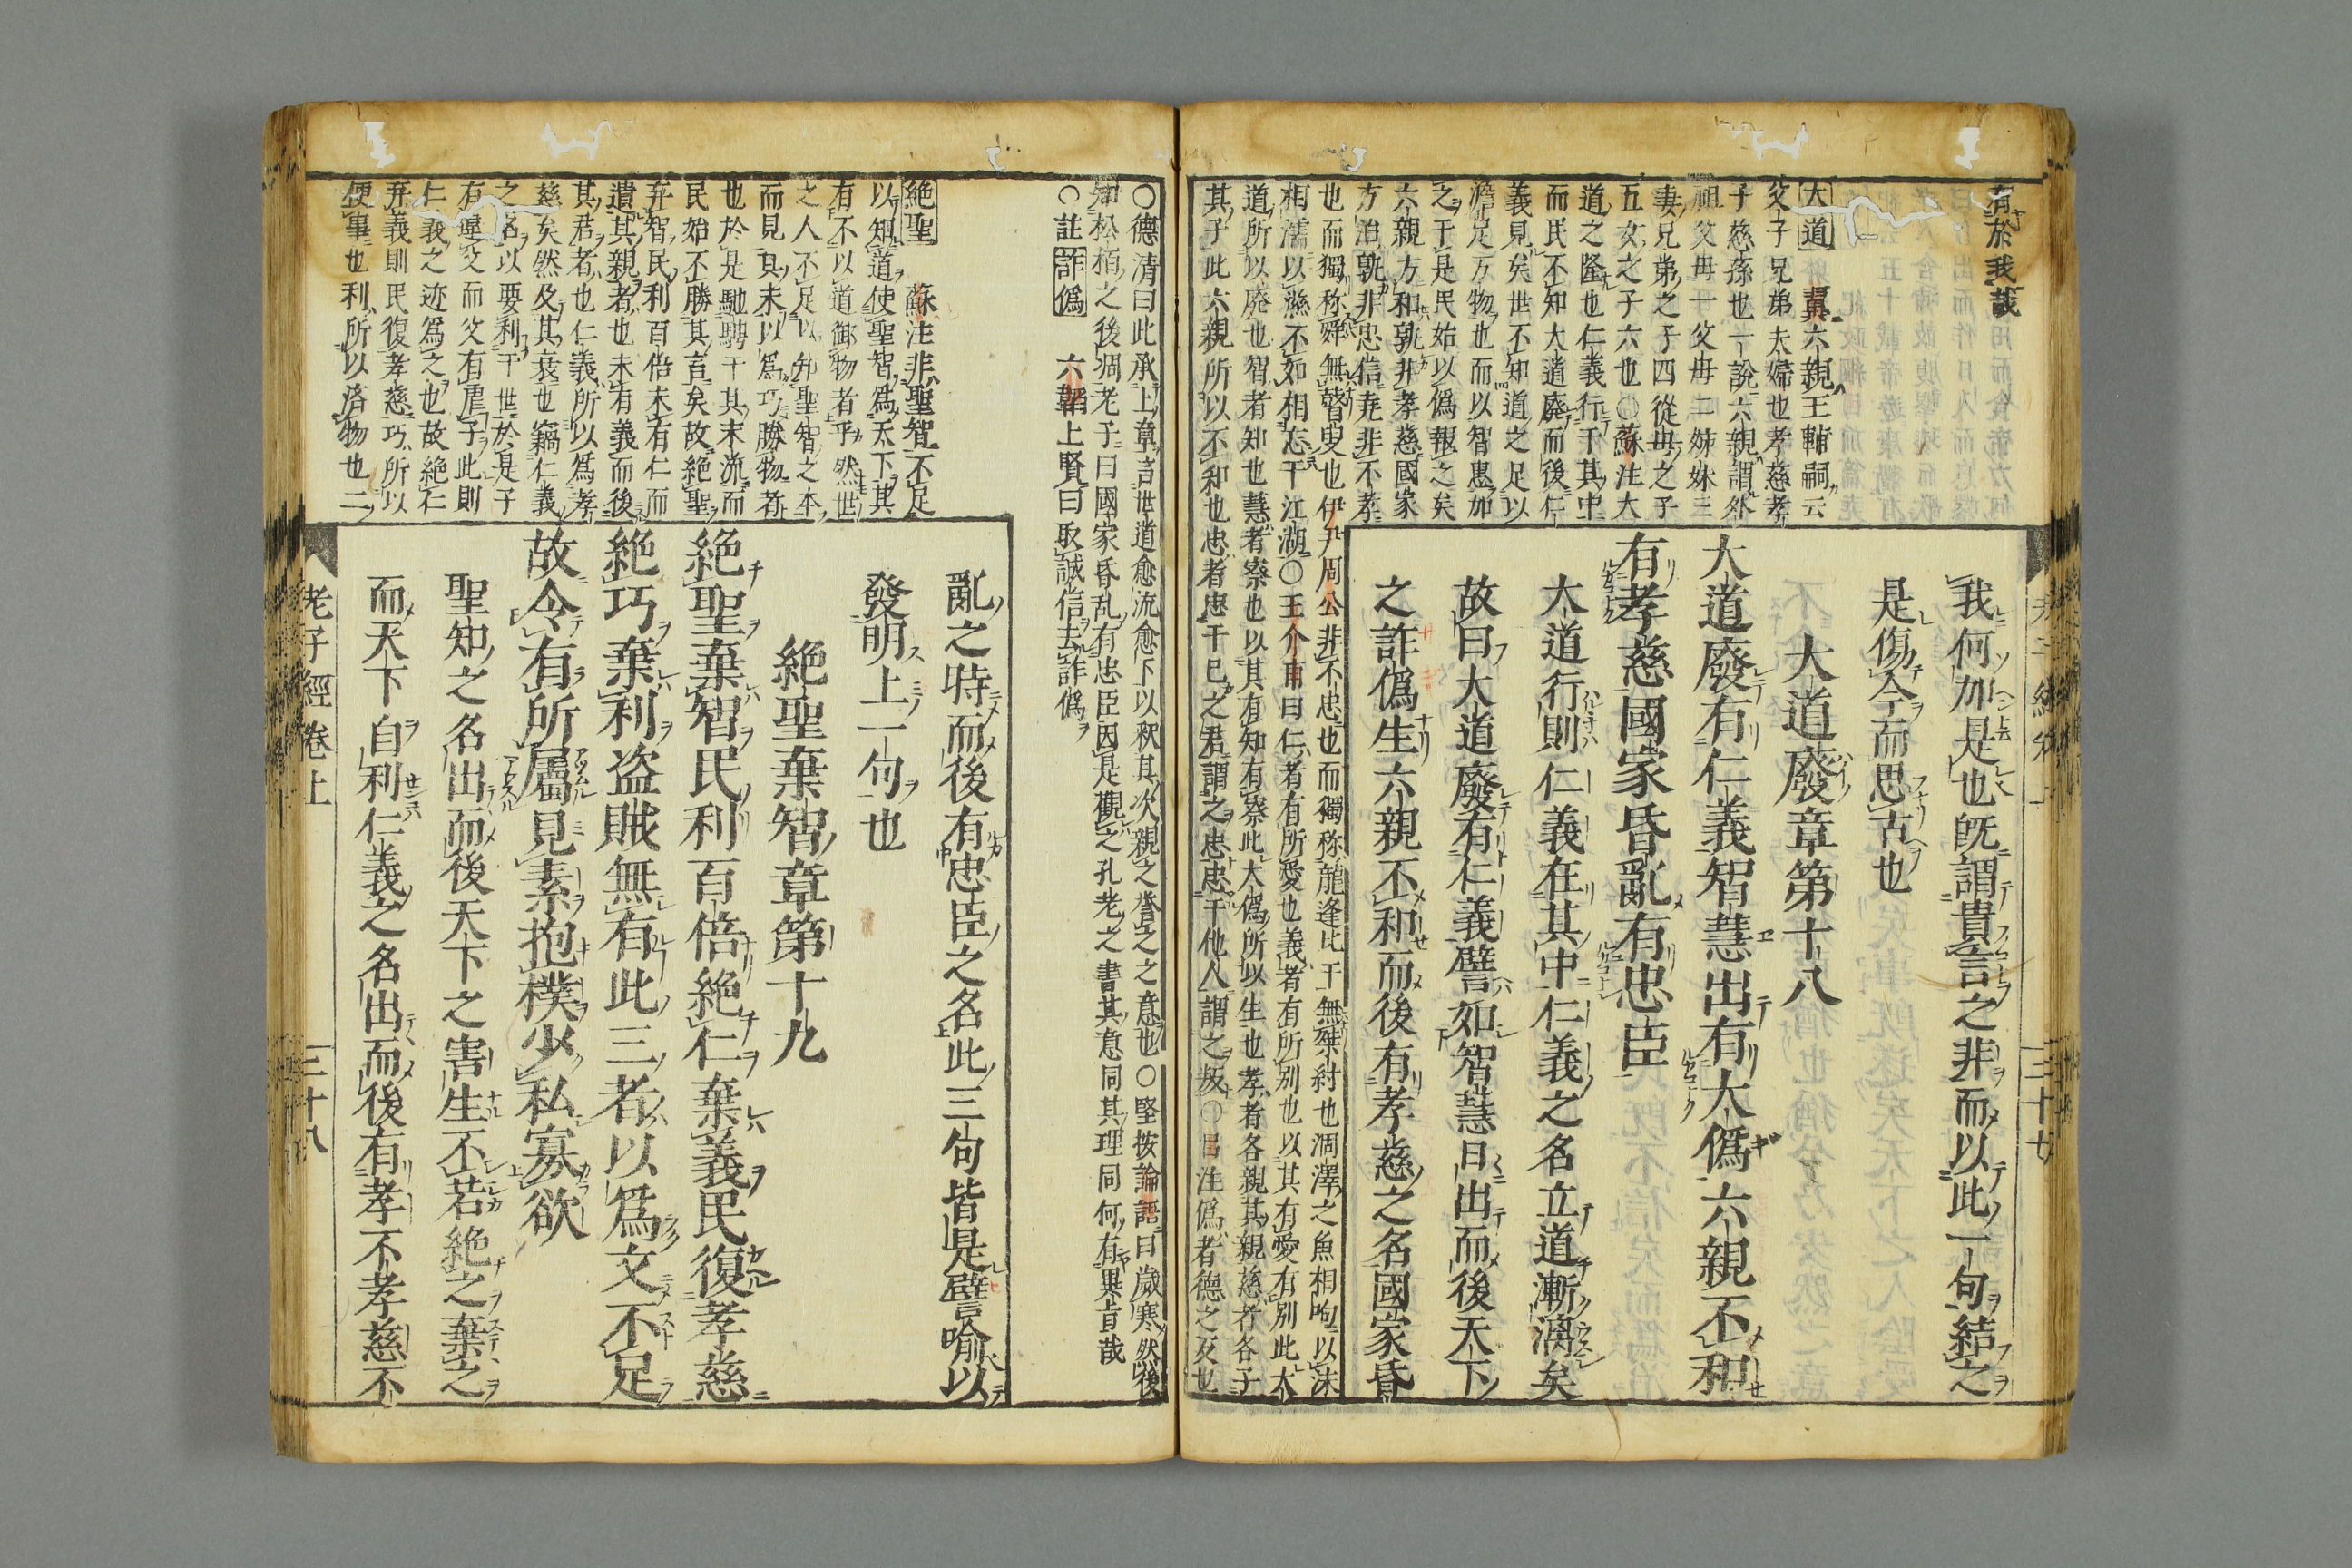 有於我哉
大道　翼六親王輔嗣云
父子兄弟夫婦也孝慈孝
子慈孫也一說六親謂外
祖父母一父母二姊妹三
妻兄弟之子四從母之子
五女之子六也○蘇注大
道之隆也仁義行于其中
而民不知大道廢而後仁
義見矣世不知道之足以
澹足万物也而以智惠加
之于是民始以僞報之矣
六親方和孰非孝慈國家
方治孰非忠信堯非不孝
也而獨称舜無瞽叟也伊尹周公非不忠也而獨称龍逢比干無桀紂也涸澤之魚相呴以沫
相濡以濕不如相忘于江湖○王介甫曰仁者有所愛也義者有所別也以其有愛有別此大
道所以廃也智者知也慧者察也以其有知有察此大僞所以生也孝者各親其親慈者各子
其子此六親所以不和也忠者忠于己之君謂之忠忠于他人謂之叛○呂注僞者德之反也
我何加是也既謂貴言之非而以此一句結之
是傷今而思古也
大道廢章第十八
大道廢有仁義智慧出有大僞六親不和
有孝慈國家昏亂有忠臣
大道行則仁義在其中仁義之名立道漸漓矣
故曰大道廢有仁義譬如智慧日出而後天下
之詐僞生六親不和而後有孝慈之名國家昏
三十七
○德清曰此承上章言世道愈流愈下以釈其次親之誉之之意也○堅按論語曰歲寒然後
知松柏之後凋老子曰國家昏乱有忠臣因是觀之孔老之書其意同其理同何有異旨哉
○註詐僞　六韜上賢曰取誠信去詐僞
亂之時而後有忠臣之名此三句皆是譬喻以
發明上一句也
絶聖　蘇注非聖智不足
以知道使聖智爲天下其
有不以道御物者乎然世
之人不足以知聖智之本
而見其末以爲巧勝物者
也於是馳騁于其末流而
民始不勝其言矣故絶聖
弃智民利百倍未有仁而
遺其親者也未有義而後
其君者也仁義所以爲孝
慈矣然及其衰也竊仁義
之名以要利于世於是子
有違父而父有虐子此則
仁義之迹爲之也故絶仁
弃義則民復孝慈巧所以
便事也利所以濟物也二
絶聖棄智章第十九
絶聖棄智民利百倍絶仁棄義民復孝慈
絶巧棄利盗賊無有此三者以爲文不足
故令有所屬見素抱樸少私寡欲
聖知之名出而後天下之害生不若絶之棄之
而天下自利仁義之名出而後有孝不孝慈不
老子經卷上
三十八